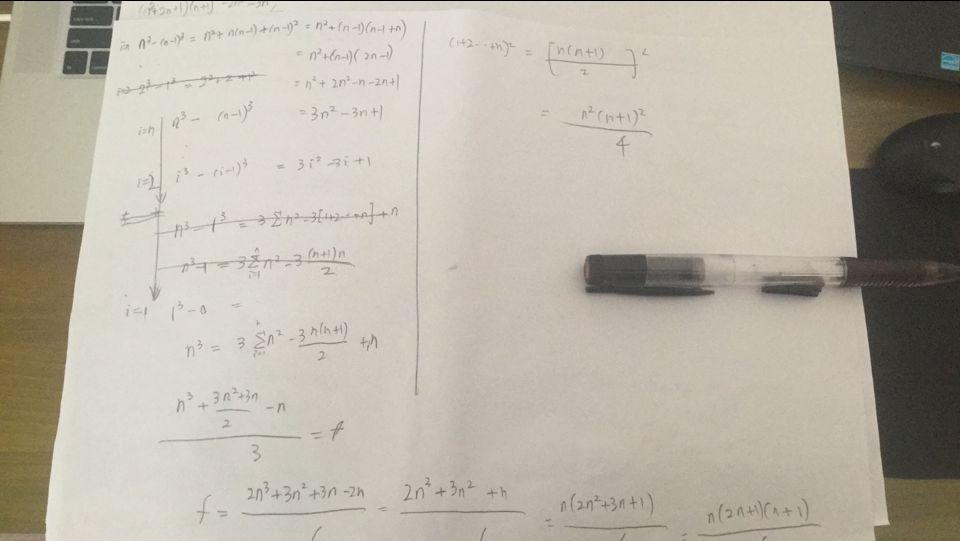 i=n n³-(n-1)³ = n²+n(n-1)+(n-1)² = n²+(n-1)(n-1+n)
= n²+(n-1)(2n-1)
= n²+2n²-n-2n+1
i=n n³ - (n-1)³ = 3n²-3n+1
i=2 i³-(i-1)³ = 3i²-3i+1
n³-1³ = 3Σn²-3[1+2+..n]+n
n³-1 = 3Σn²-3(n+1)n/2
i=1 1³-0 =
n³ = 3Σn²-3n(n+1)/2+n
(n³+(3n²+3n)/2-n)/3 = f
f = 2n³+3n²+3n-2n/6 = 2n³+3n²+n/6 = n(2n²+3n+1)/6 = n(2n+1)(n+1)/6
(1+2…+n)² = [n(n+1)/2]²
= n²(n+1)²/4